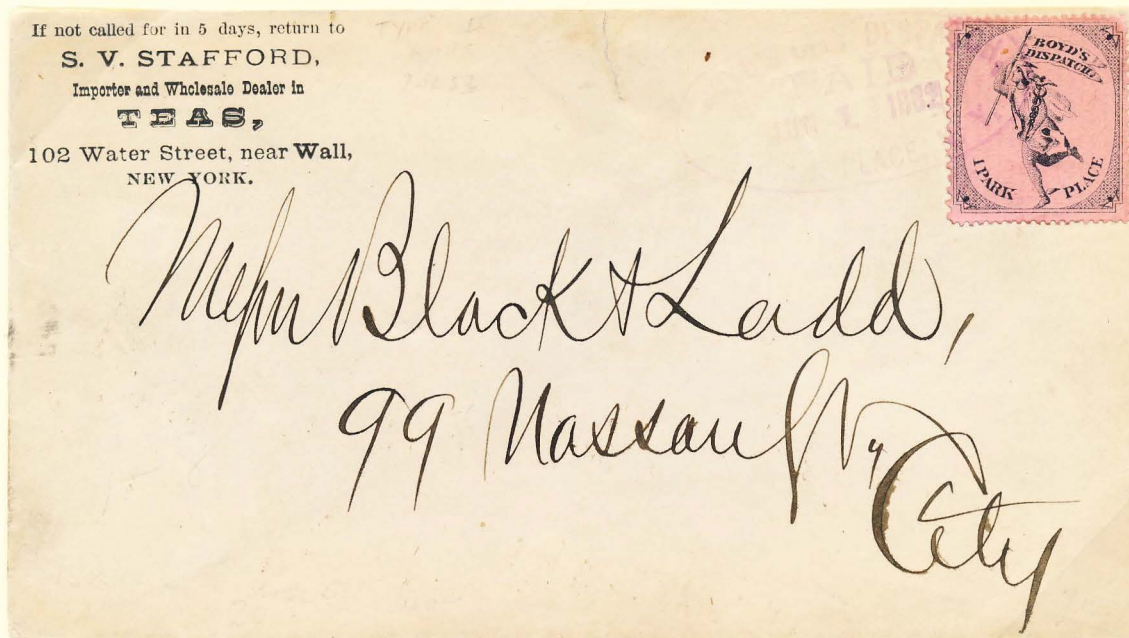 If not called for in 5 days, return to
S. V. STAFFORD,
Importer and Wholesale Dealer in
TEAS,
102 Water Street, near Wall,
NEW YORK.
PAID
1882
PLACE
BOYD'S
DISPATCH
1 PARK PLACE
Messrs Black & Ladd,
99 Nassau St,
City